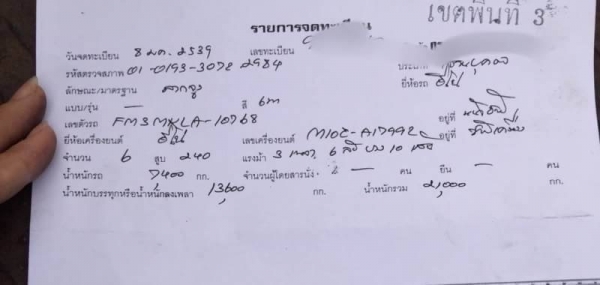 เขตพื้นที่ 3
รายการจดทะเบียน
วันจดทะเบียน 8 มค. 2539 เลขทะเบียน
รหัสตรวจสภาพ 01-0193-3072 2984 ประเภท
ลักษณะ/มาตรฐาน ลากจูง ยี่ห้อรถ ฮีโน่
แบบ/รุ่น — สี
เลขตัวรถ FM3MKLA-10768 อยู่ที่
ยี่ห้อเครื่องยนต์ ฮีโน่ เลขเครื่องยนต์ M10C-A17992 อยู่ที่
จำนวน 6 สูบ 240 แรงม้า 3 เพลา 6 ล้อ ยาง 10 เส้น
น้ำหนักรถ 7400 กก. จำนวนผู้โดยสารนั่ง — คน ยืน — คน
น้ำหนักบรรทุกหรือน้ำหนักลงเพลา 13,600 กก. น้ำหนักรวม 21,000 กก.